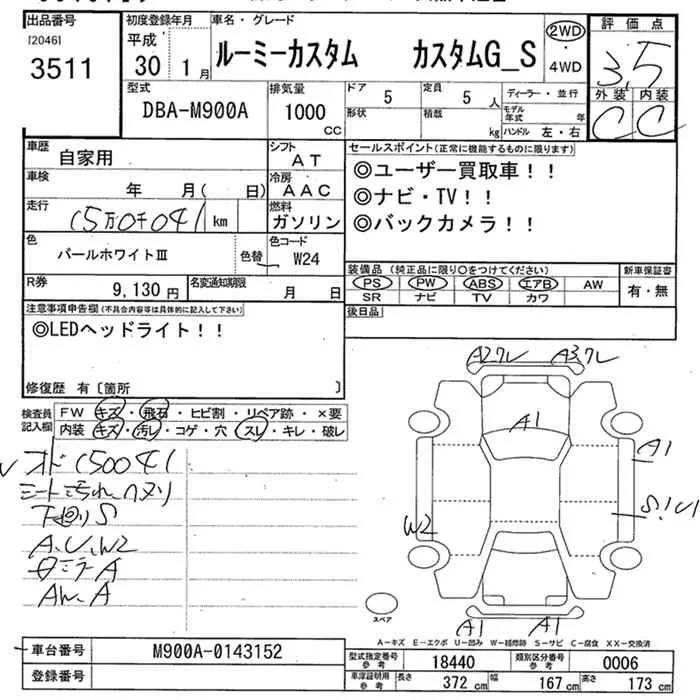 出品番号 初度登録年月 車名・グレード 評価点
[2046] 平成 ルーミーカスタム カスタムG_S 2WD・4WD 3.5
3511 30年1月
外装 内装
C C
型式 排気量 ドア 定員 ディーラー・並行
DBA-M900A 1000 cc 5 5 人
形状 積載 kg モデル年式 年
ハンドル 左・右
車歴 自家用 シフト AT
セールスポイント(正常に機能するものに限ります)
◎ユーザー買取車!!
◎ナビ・TV!!
◎バックカメラ!!
車検 年 月( 日) 冷房 AAC
走行 15万0千041 km 燃料 ガソリン
色 パールホワイトⅢ 色替 色コード W24
装備品(純正品に限り○をつけてください) 新車保証書
PS PW ABS エアB AW 有・無
SR ナビ TV カワ
R券 9,130円 名変通知期限 月 日
後日品
注意事項申告欄(不具合内容等は具体的に記入して下さい)
◎LEDヘッドライト!!
修復歴 有〔箇所 〕
検査員記入欄 FW キズ・飛石・ヒビ割・リペア跡・×要
内装 キズ・汚レ・コゲ・穴・スレ・キレ・破レ
オド150041
シート汚れ、ヘタリ
下廻りS
A、U、W2
ミラA
AW、A
A2ワレ A3ワレ
A1
A1
S1U1
W2
A1 A1
スペア
A-キズ E-エクボ U-凹み W-補修跡 S-サビ C-腐食 XX-交換済
車台番号 M900A-0143152
型式指定番号 参考 18440 類別区分番号 参考 0006
登録番号
車庫証明用 参考 長さ 372 cm 幅 167 cm 高さ 173 cm